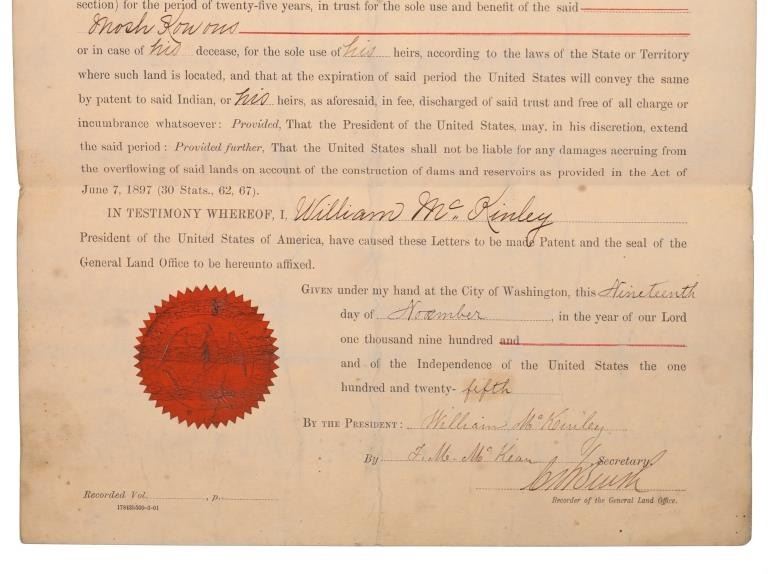 section) for the period of twenty-five years, in trust for the sole use and benefit of the said
or in case of his decease, for the sole use of his heirs, according to the laws of the State or Territory
where such land is located, and that at the expiration of said period the United States will convey the same
by patent to said Indian, or his heirs, as aforesaid, in fee, discharged of said trust and free of all charge or
incumbrance whatsoever: Provided, That the President of the United States, may, in his discretion, extend
the said period: Provided further, That the United States shall not be liable for any damages accruing from
the overflowing of said lands on account of the construction of dams and reservoirs as provided in the Act of
June 7, 1897 (30 Stats., 62, 67).
IN TESTIMONY WHEREOF, I, William McKinley
President of the United States of America, have caused these Letters to be made Patent and the seal of the
General Land Office to be hereunto affixed.
GIVEN under my hand at the City of Washington, this Nineteenth
day of November, in the year of our Lord
one thousand nine hundred and
and of the Independence of the United States the one
hundred and twenty-fifth
BY THE PRESIDENT: William McKinley
By F. M. McKean Secretary.
Recorder of the General Land Office.
Recorded Vol. , p.